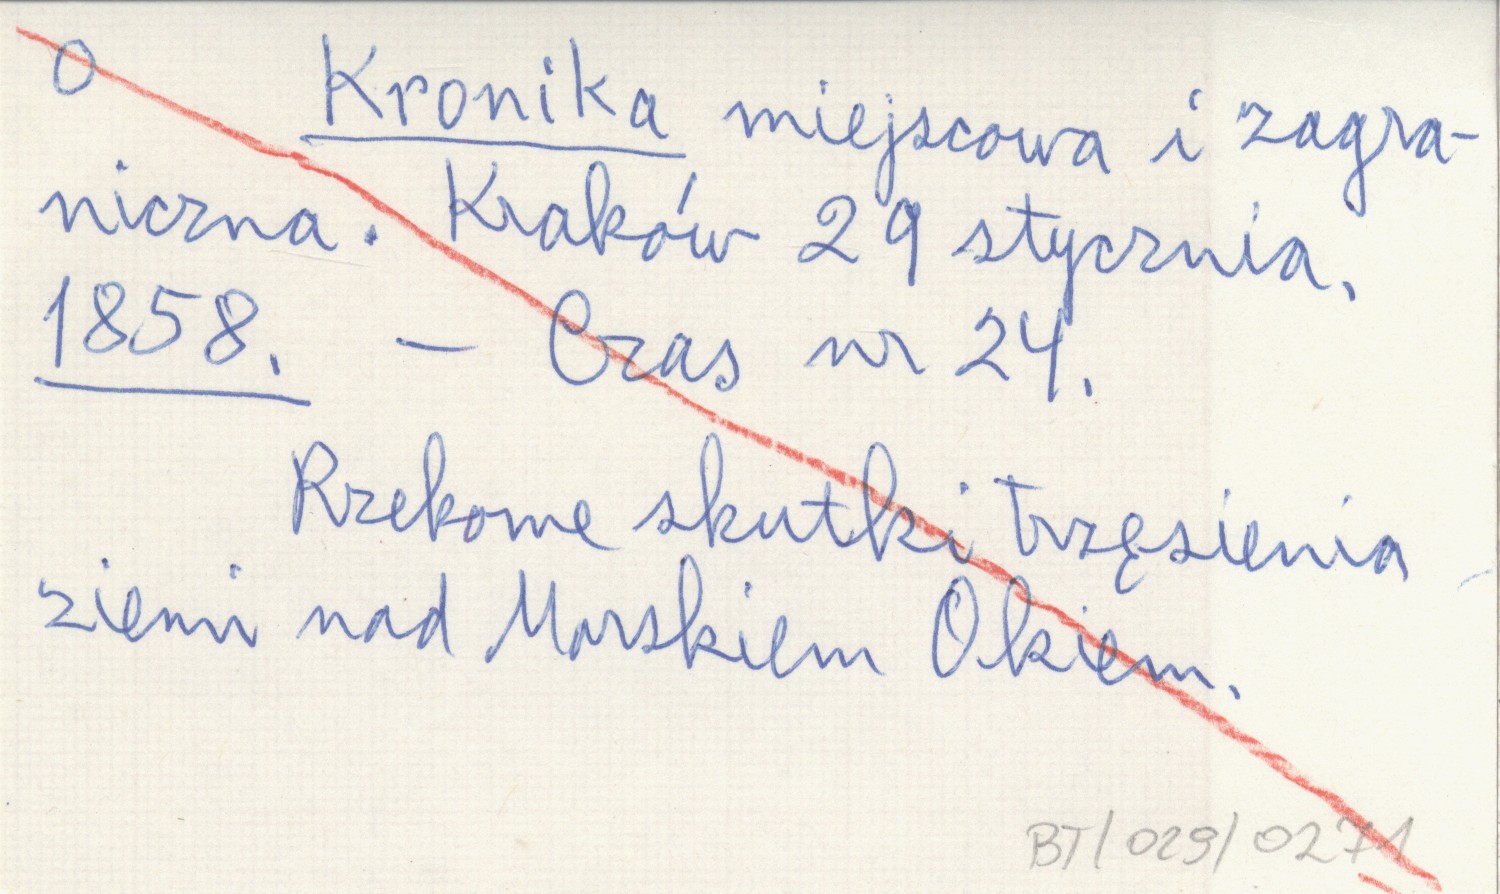 O Kronika miejscowa i zagra-
niczna. Kraków 29 stycznia.
1858. — Czas nr 24.
Rzekome skutki trzęsienia
ziemi nad Morskiem Okiem.
BT/029/0271